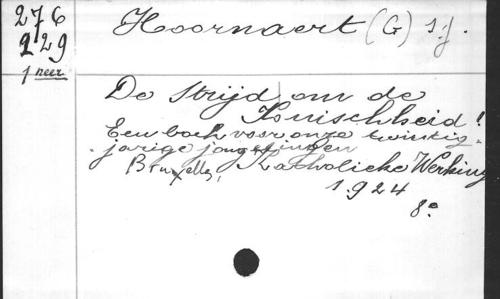 276
229
1 neer
Hoornaert (G) s.j.
De strijd om de
Kuischheid!
Een boek voor onze twintig-
jarige jongelingen
Bruxelles, Katholieke Werking
1924
8o